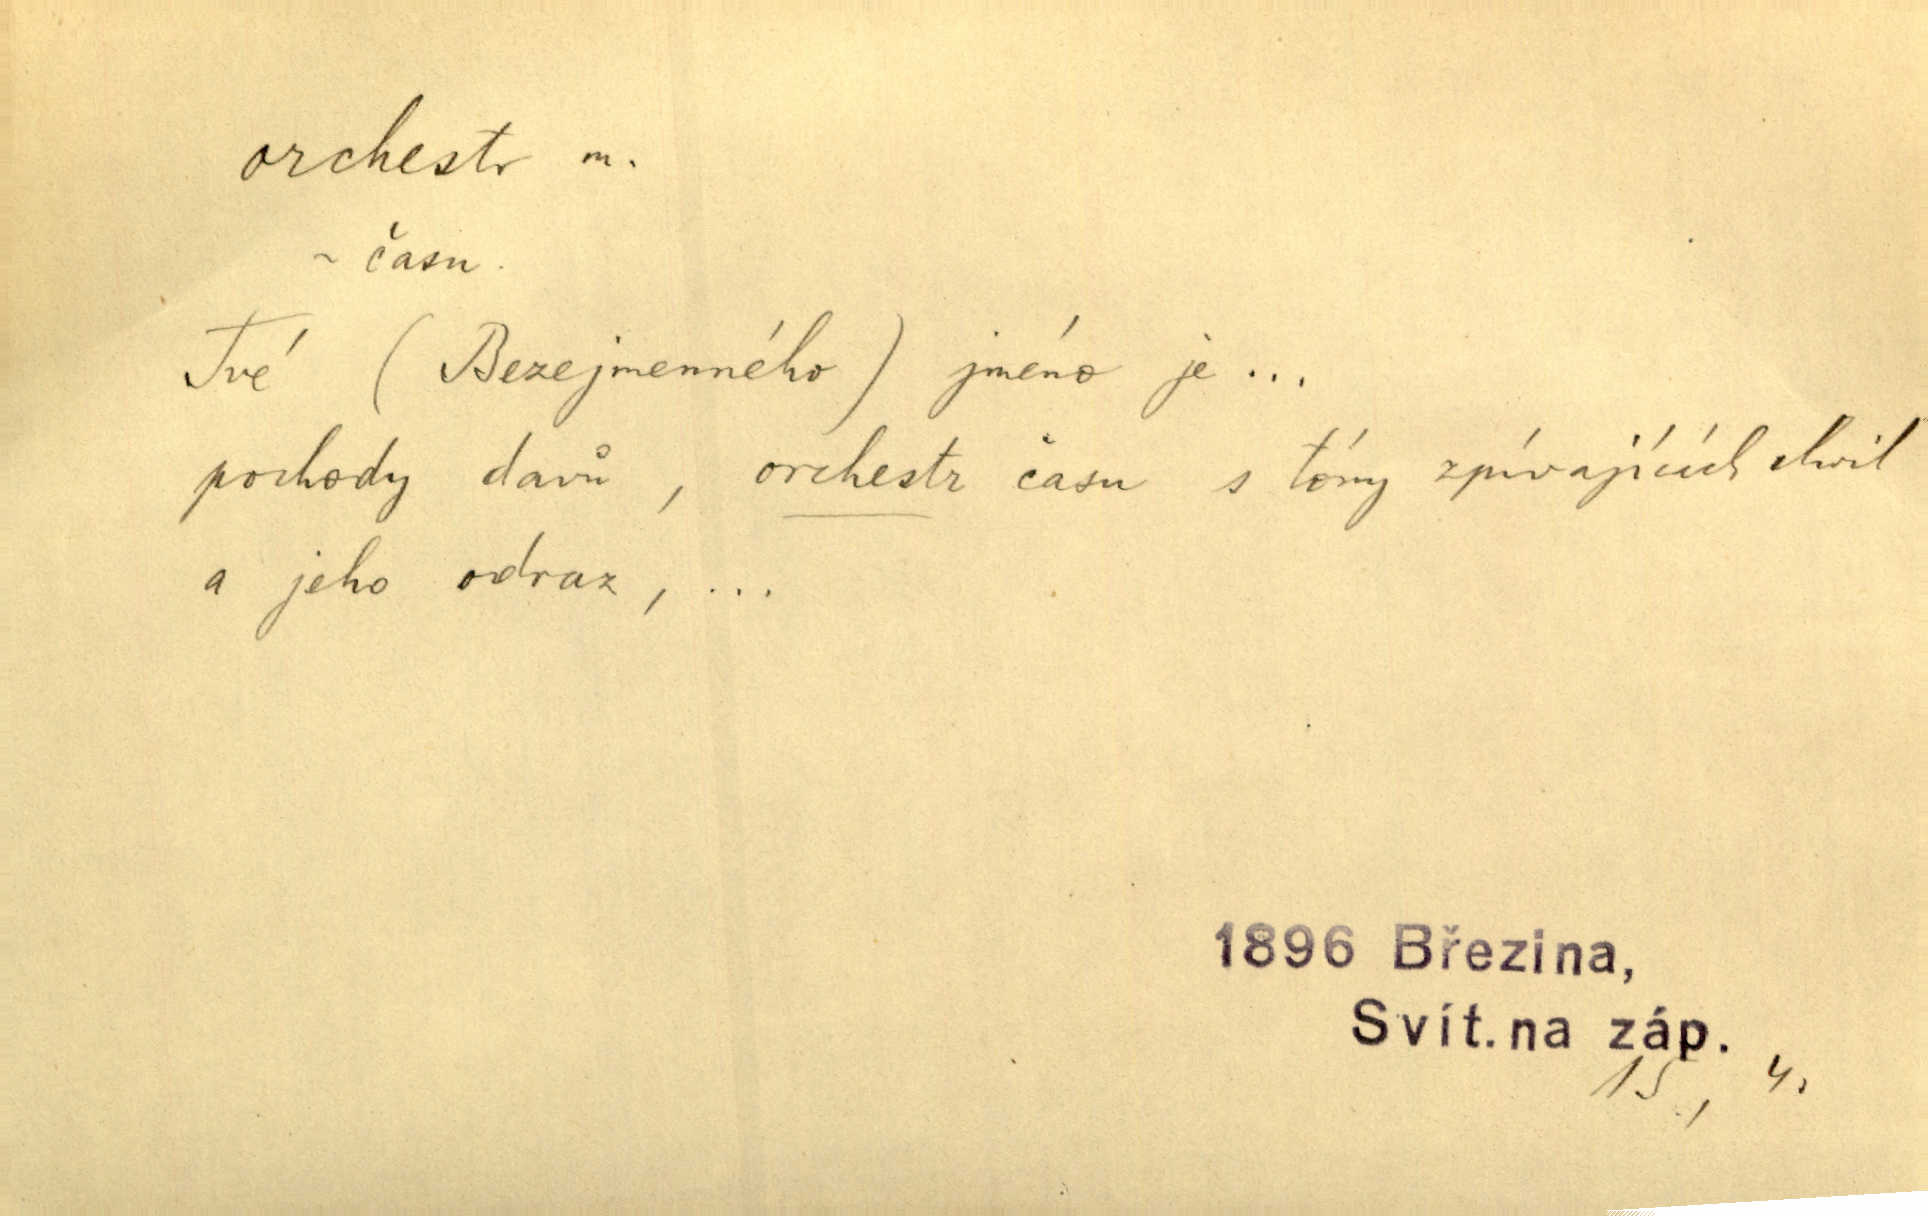 orchestr m.
~ času.
Tvé (Bezejmenného) jméno je ...
pochody davů, orchestr času s tóny zpívajících chvil
a jeho odraz, ...
1896 Březina,
Svít. na záp.
15, 4.